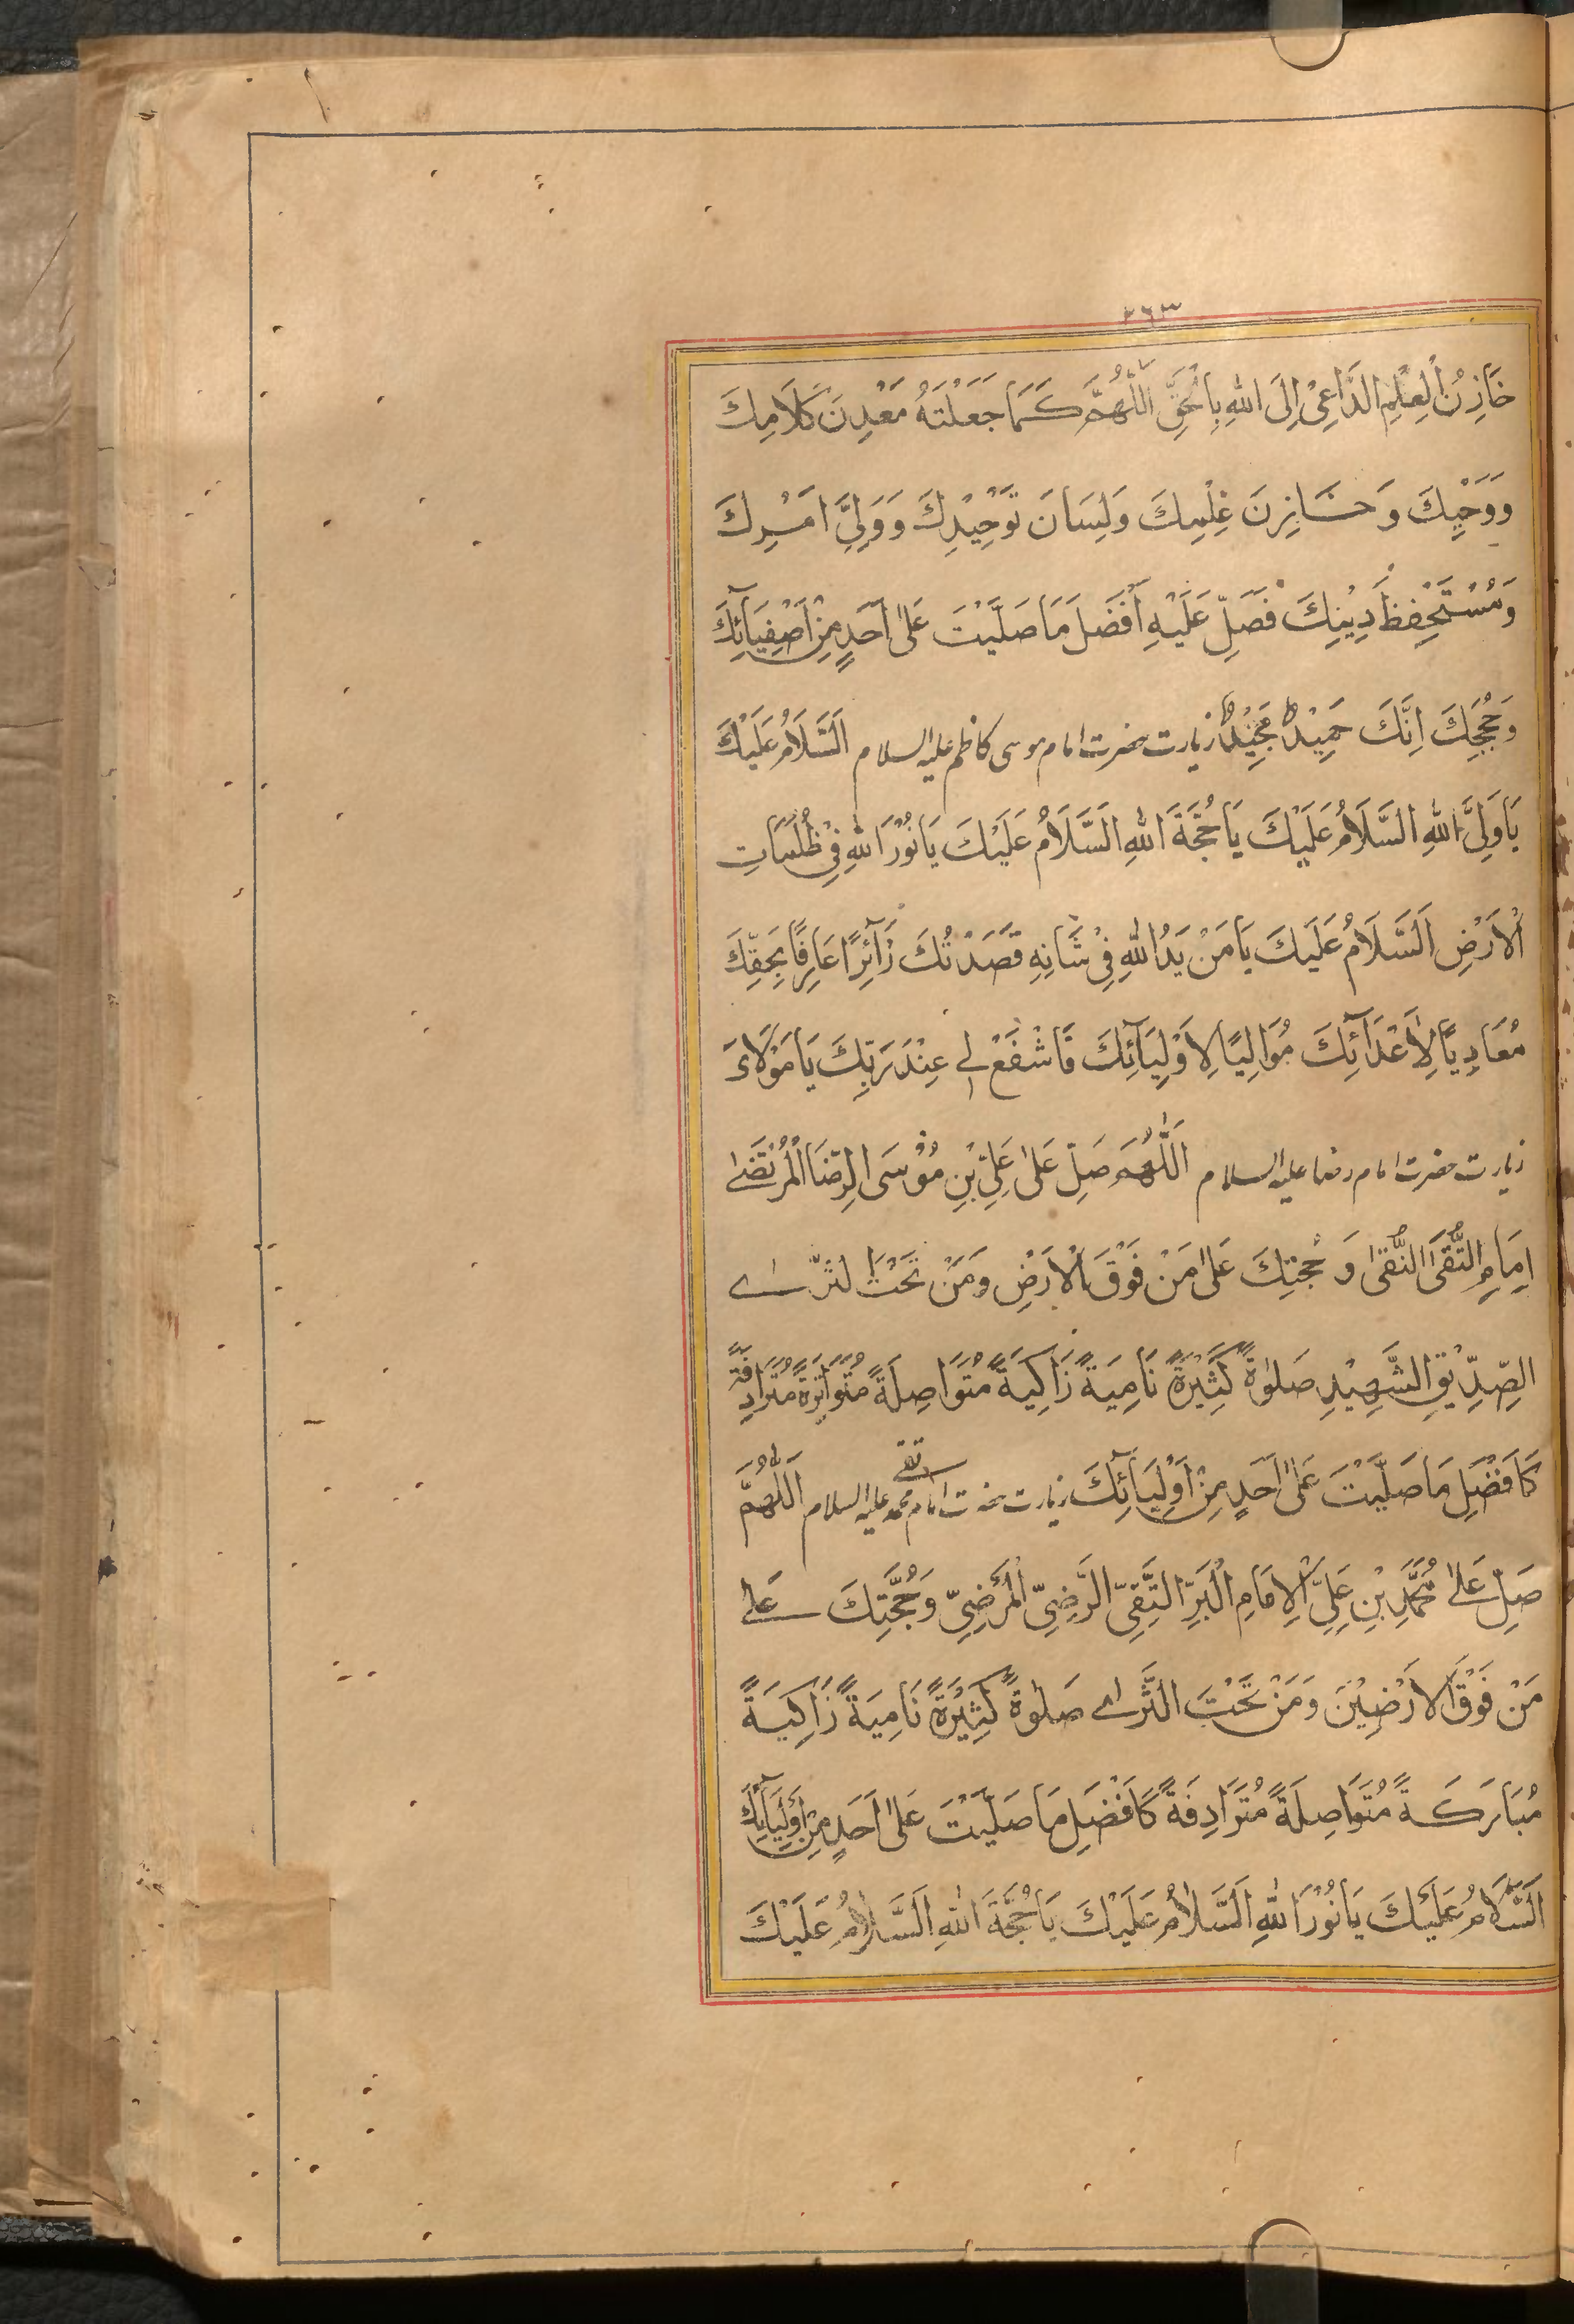 ٢٦٣
خَازِنُ الْعِلْمِ الدَّاعِيْ اِلَى اللهِ بِالْحَقِّ اَللّٰهُمَّ كَمَا جَعَلْتَهُ مَعْدِنَ كَلَامِكَ
وَوَحْيِكَ وَخَازِنَ عِلْمِكَ وَلِسَانَ تَوْحِيْدِكَ وَوَلِيَّ اَمْرِكَ
وَمُسْتَحْفِظَ دِيْنِكَ فَصَلِّ عَلَيْهِ اَفْضَلَ مَا صَلَّيْتَ عَلٰى اَحَدٍ مِنْ اَصْفِيَآئِكَ
وَحُجَجِكَ اِنَّكَ حَمِيْدٌ مَجِيْدٌ زيارت حضرت امام موسى كاظم عليه السلام اَلسَّلَامُ عَلَيْكَ
يَا وَلِيَّ اللهِ السَّلَامُ عَلَيْكَ يَا حُجَّةَ اللهِ اَلسَّلَامُ عَلَيْكَ يَا نُوْرَ اللهِ فِيْ ظُلُمَاتِ
الْاَرْضِ اَلسَّلَامُ عَلَيْكَ يَا مَنْ يَدُ اللهِ فِيْ شَانِهِ قَصَدْتُكَ زَآئِرًا عَارِفًا بِحَقِّكَ
مُعَادِيًا لِاَعْدَآئِكَ مُوَالِيًا لِاَوْلِيَآئِكَ فَاشْفَعْ لِيْ عِنْدَ رَبِّكَ يَا مَوْلَاىَ
زيارت حضرت امام رضا عليه السلام اَللّٰهُمَّ صَلِّ عَلٰى عَلِيِّ بْنِ مُوْسَى الرِّضَا الْمُرْتَضٰى
اِمَامِ التُّقٰى النُّقٰى وَحُجَّتِكَ عَلٰى مَنْ فَوْقَ الْاَرْضِ وَمَنْ تَحْتَ الثَّرٰى
الصِّدِّيْقِ الشَّهِيْدِ صَلٰوةً كَثِيْرَةً نَامِيَةً زَاكِيَةً مُتَوَاصِلَةً مُتَوَاتِرَةً مُتَرَادِفَةً
كَاَفْضَلِ مَا صَلَّيْتَ عَلٰى اَحَدٍ مِنْ اَوْلِيَآئِكَ زيارت حضرت امام محمد تقى عليه السلام اَللّٰهُمَّ
صَلِّ عَلٰى مُحَمَّدِ بْنِ عَلِيِّ الْاِمَامِ الْبَرِّ التَّقِيِّ الرَّضِيِّ الْمَرْضِيِّ وَحُجَّتِكَ عَلٰى
مَنْ فَوْقَ الْاَرْضِيْنَ وَمَنْ تَحْتَ الثَّرٰى صَلٰوةً كَثِيْرَةً نَامِيَةً زَاكِيَةً
مُبَارَكَةً مُتَوَاصِلَةً مُتَرَادِفَةً كَاَفْضَلِ مَا صَلَّيْتَ عَلٰى اَحَدٍ مِنْ اَوْلِيَآئِكَ
اَلسَّلَامُ عَلَيْكَ يَا نُوْرَ اللهِ اَلسَّلَامُ عَلَيْكَ يَا حُجَّةَ اللهِ اَلسَّلَامُ عَلَيْكَ